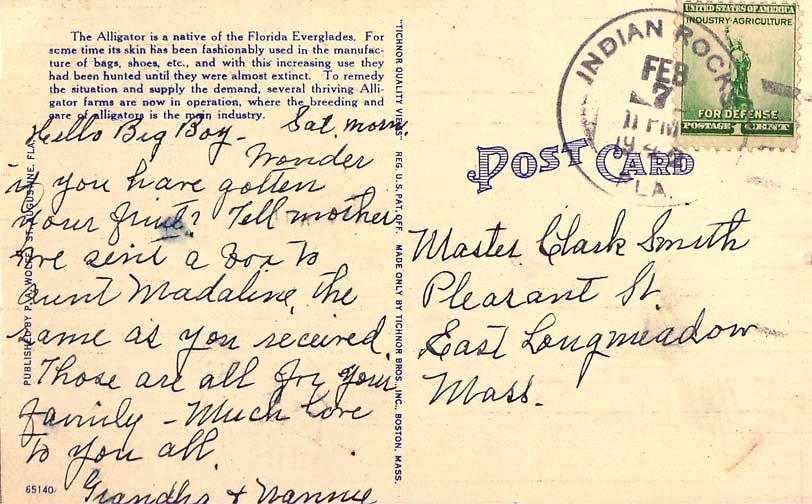 The Alligator is a native of the Florida Everglades. For
some time its skin has been fashionably used in the manufac-
ture of bags, shoes, etc., and with this increasing use they
had been hunted until they were almost extinct. To remedy
the situation and supply the demand, several thriving Alli-
gator farms are now in operation, where the breeding and
care of alligators is the main industry.
Hello Big Boy - Sat. morn.
Wonder
if you have gotten
your fruit? Tell mother
we send a box to
Aunt Madaline, the
same as you received.
Those are all for your
family - Much love
to you all
Grandpa + Nannie
65140
PUBLISHED BY ST. AUGUSTINE, FLA.
"TICHNOR QUALITY VIEWS" REG. U.S. PAT. OFF. MADE ONLY BY TICHNOR BROS., INC., BOSTON, MASS.
POST CARD
INDIAN ROCKS
FEB
7
11 PM
FLA.
UNITED STATES OF AMERICA
INDUSTRY AGRICULTURE
FOR DEFENSE
POSTAGE 1 CENT
Master Clark Smith
Pleasant St
East Longmeadow
Mass.